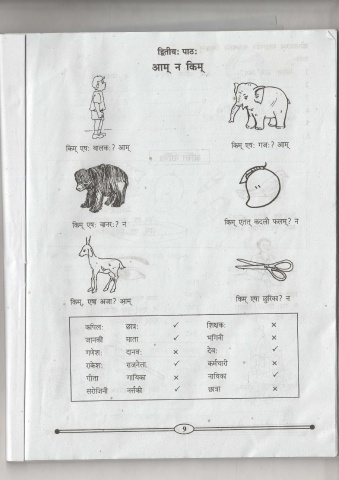 द्वितीयः पाठः
आम् न किम्
किम् एषः बालकः? आम्
किम् एषः गजः? आम्
किम् एषः वानरः? न
किम् एतत् कदली फलम्? न
किम्, एषा अजा? आम्
किम् एषा छुरिका? न
कपिलः छात्रः ✓ शिक्षकः ×
जानकी माता ✓ भगिनी ×
गणेशः दानवः × देवः ✓
राकेशः राजनेता ✓ कर्मचारी ×
गीता गायिका × नायिका ✓
सरोजिनी नर्तकी ✓ छात्रा ×
9